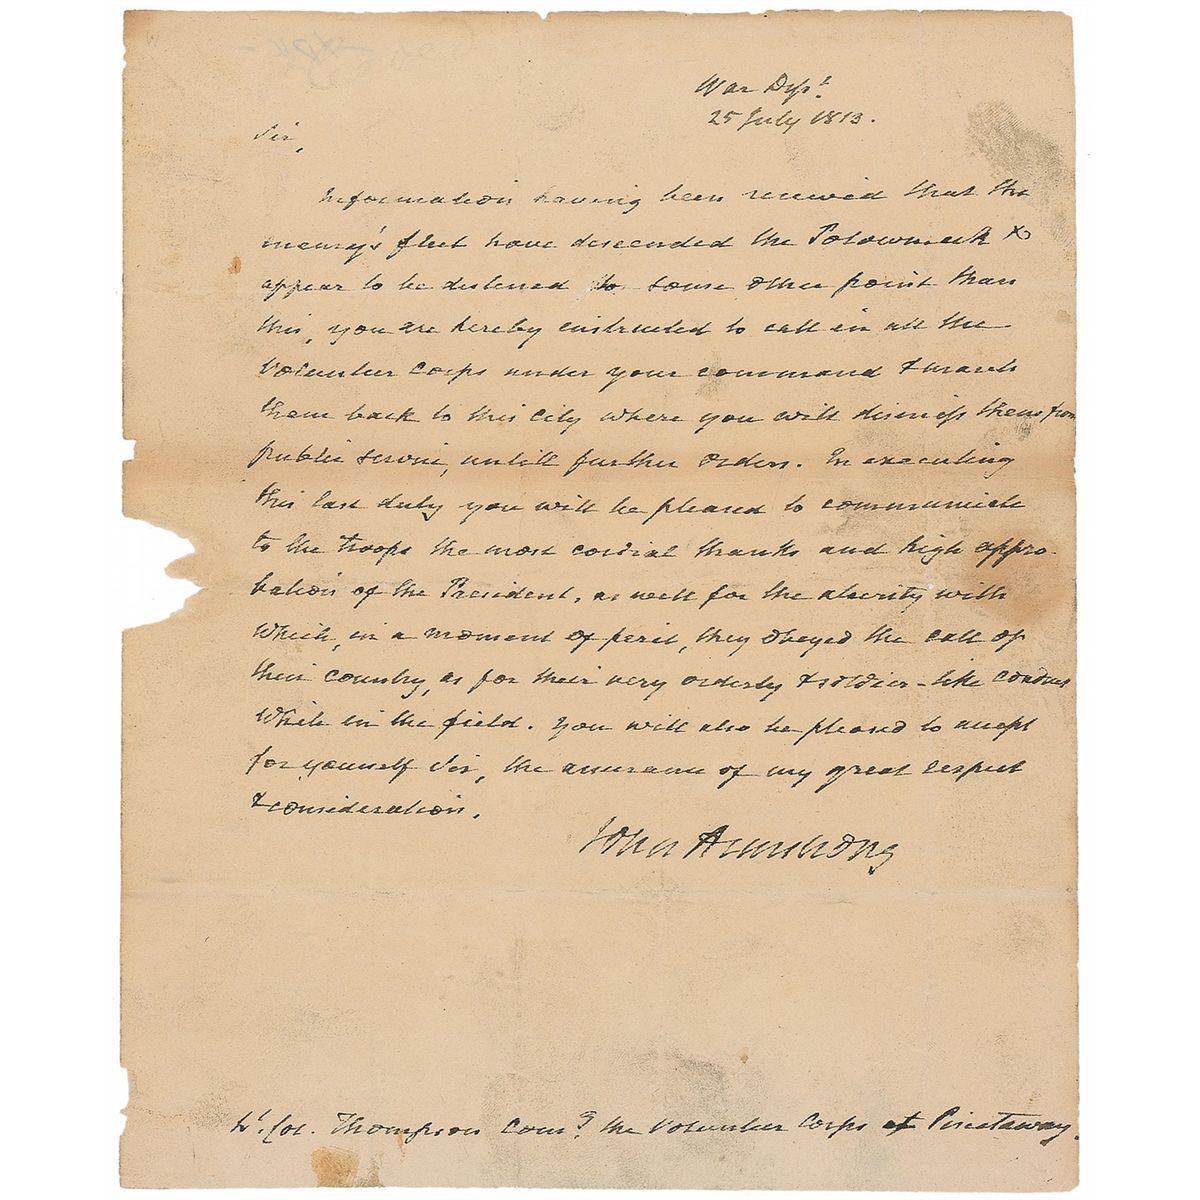 War Dept.
25 July 1813.
Sir,
Information having been received that the
enemy's fleet have descended the Potowmack &
appear to be destened to some other point than
this, you are hereby instructed to call in all the
Volunteer Corps under your command & march
them back to this city where you will dismiss them from
public service, untill further orders. In executing
this last duty you will be pleased to communicate
to the troops the most cordial thanks and high appro-
bation of the President, as well for the alacrity with
which, in a moment of peril, they obeyed the call of
their country, as for their very orderly & soldier-like conduct
while in the field. You will also be pleased to accept
for yourself Sir, the assurance of my great respect
& consideration.
John Armstrong
Lt. Col. Thompson Comg. the Volunteer Corps at Piscataway.